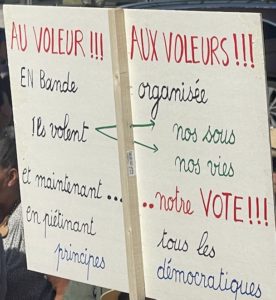 AU VOLEUR !!! AUX VOLEURS !!!
EN Bande organisée
Ils volent nos sous
nos vies
et maintenant... ..notre VOTE!!!
en piétinant tous les
principes démocratiques